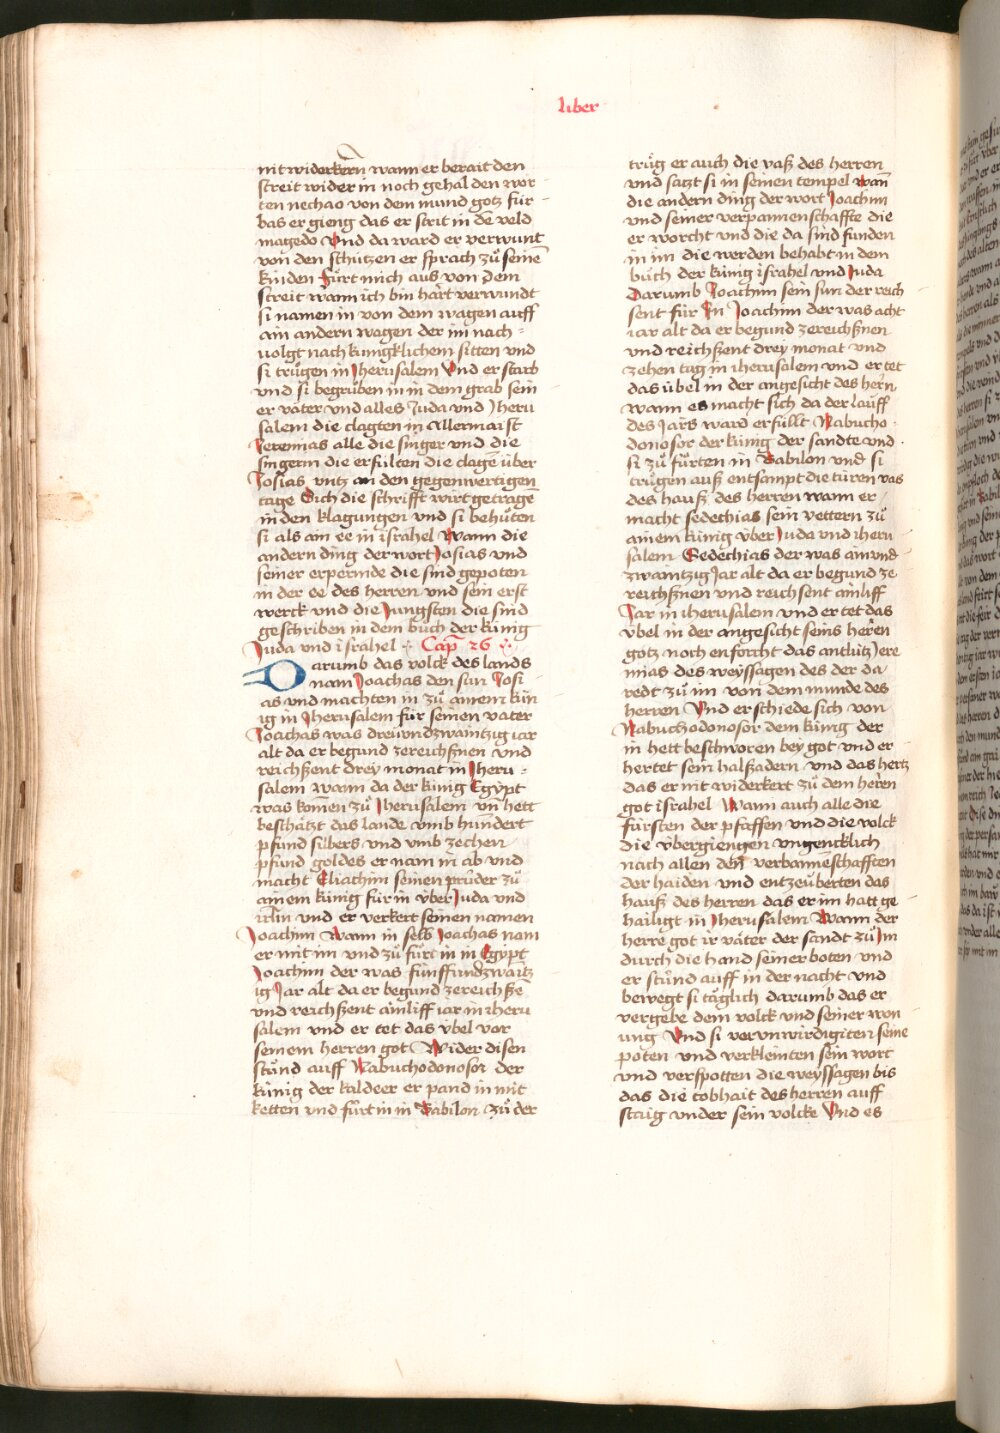 liber
nit widerkern wann er berait den
streit wider in noch gehal den wor
ten nechao von dem mund gotz für
bas er gieng das er strit in dē veld
magedo Vnd da ward er verwunt
von den schützen er sprach zů seinē
kinden fůrt mich aus von dem
streit wann ich bin hart verwundt
si namen in von dem wagen auff
ain andern wagen der im nach
uolgt nach kungklichem sitten vnd
si trůgen in Jherusalem Vnd er starb
vnd si begrůben in in dem grab sein
er väter vnd alles Juda vnd Jheru
salem die clagten in Allermaist
Jeremias alle die singer vnd die
singerin die erfulten die clagē über
Josias vntz an den gegenwertigen
tage Sich die schrifft wirt getragē
in den klagungen vnd si behůten
si als ain ee in israhel Wann die
andern ding der wort Josias vnd
seiner erpermde die sind gepoten
in der ee des herren vnd sein erst
werck vnd die Jungsten die sind
geschriben in dem bůch der künig
Juda vnd israhel Cap 26
Darumb das volck des lands
nam Joachas den sun Josi
as vnd machten in zů ainem kün
ig in Jherusalem für seinen vater
Joachas was dreuvndzwaintzig iar
alt da er begund zereichsnen vnd
reichsent drey monat in Jheru
salem wann da der künig Egypt
was komen zů Jherusalem vn̄ hett
beschätzt das lande vmb hundert
pfund silbers vnd vmb zechen
pfund goldes er nam in ab vnd
macht Eliachim seinen průder zů
ainem künig für in über Juda vnd
irlm̄ vnd er verkert seinen namen
Joachim Wann in selb Joachas nam
er mit im vnd zů fůrt in in Egypt
Joachim der was funffundzwaītz
ig Jar alt da er begund zereichsnē
vnd reichsent ainliff iar in iheru
salem vnd er tet das übel vor
seinem herren got Wider disen
stůnd auff Nabuchodonosor der
künig der kaldeer er pand in mit
ketten vnd fůrt in in Babilon zů der
trůg er auch die vaß des herren
vnd satzt si in seinen tempel wan̄
die andern ding der wort Joachim
vnd seiner verpannenschaffte die
er worcht vnd die da sind funden
in im die werden behabt in dem
bůch der künig israhel vnd Juda
Darumb Joachim sein sun der reich
sent für In Joachim der was acht
iar alt da er begund zereichsnen
vnd reichsent drey monat vnd
zehen tag in iherusalem vnd er tet
das übel in der angesicht des hern̄
wann es macht sich da der lauff
des Jars ward erfüllt Nabucho
donosor der künig der sandte vnd
si zů fůrten in Babilon vnd si
trůgen auß entsampt die türen vas
des hauß des herren wann er
macht sedechias sein vettern zů
ainem künig über Juda vnd iheru
salem Sedechias der was ainvnd
zwaintzig Jar alt da er begund ze
reichsnen vnd reichsent ainliff
Jar in iherusalem vnd er tet das
übel in der angesicht seins herē̄n
gotz noch enforcht das antlütz Jere
mias des weyssagen des der da
redt zů im von dem munde des
herren Vnd er schiede sich von
Nabuchodonosor dem künig der
in hett beschworen bey got vnd er
hertet sein halsadern vnd das hertz
das er nit widerkert zů dem herē̄n
got israhel Wann auch alle die
fürsten der pfaffen vnd die volck
die übergiengen vngencklich
nach allen den verbannēschafften
der haiden vnd entzeuberten das
hauß des herren das er im hatt ge
hailigt in Jherusalem Wann der
herre got ir väter der sandt zů In
durch die hand seiner boten vnd
er stůnd auff in der nacht vnd
bewegt si täglich darumb das er
vergebe dem volck vnd seiner won
ung Vnd si verunwirdigiten seine
poten vnd verkleinten sein wort
vnd verspotten die weyssagen bis
das die tobhait des herren auff
staig vnder sein volcke Vnd es